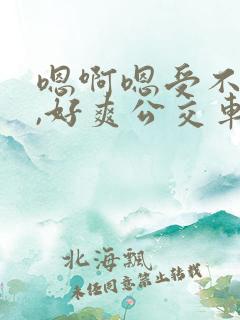 嗯啊嗯受不
,好爽公交车
北海飘
未经同意禁止转载